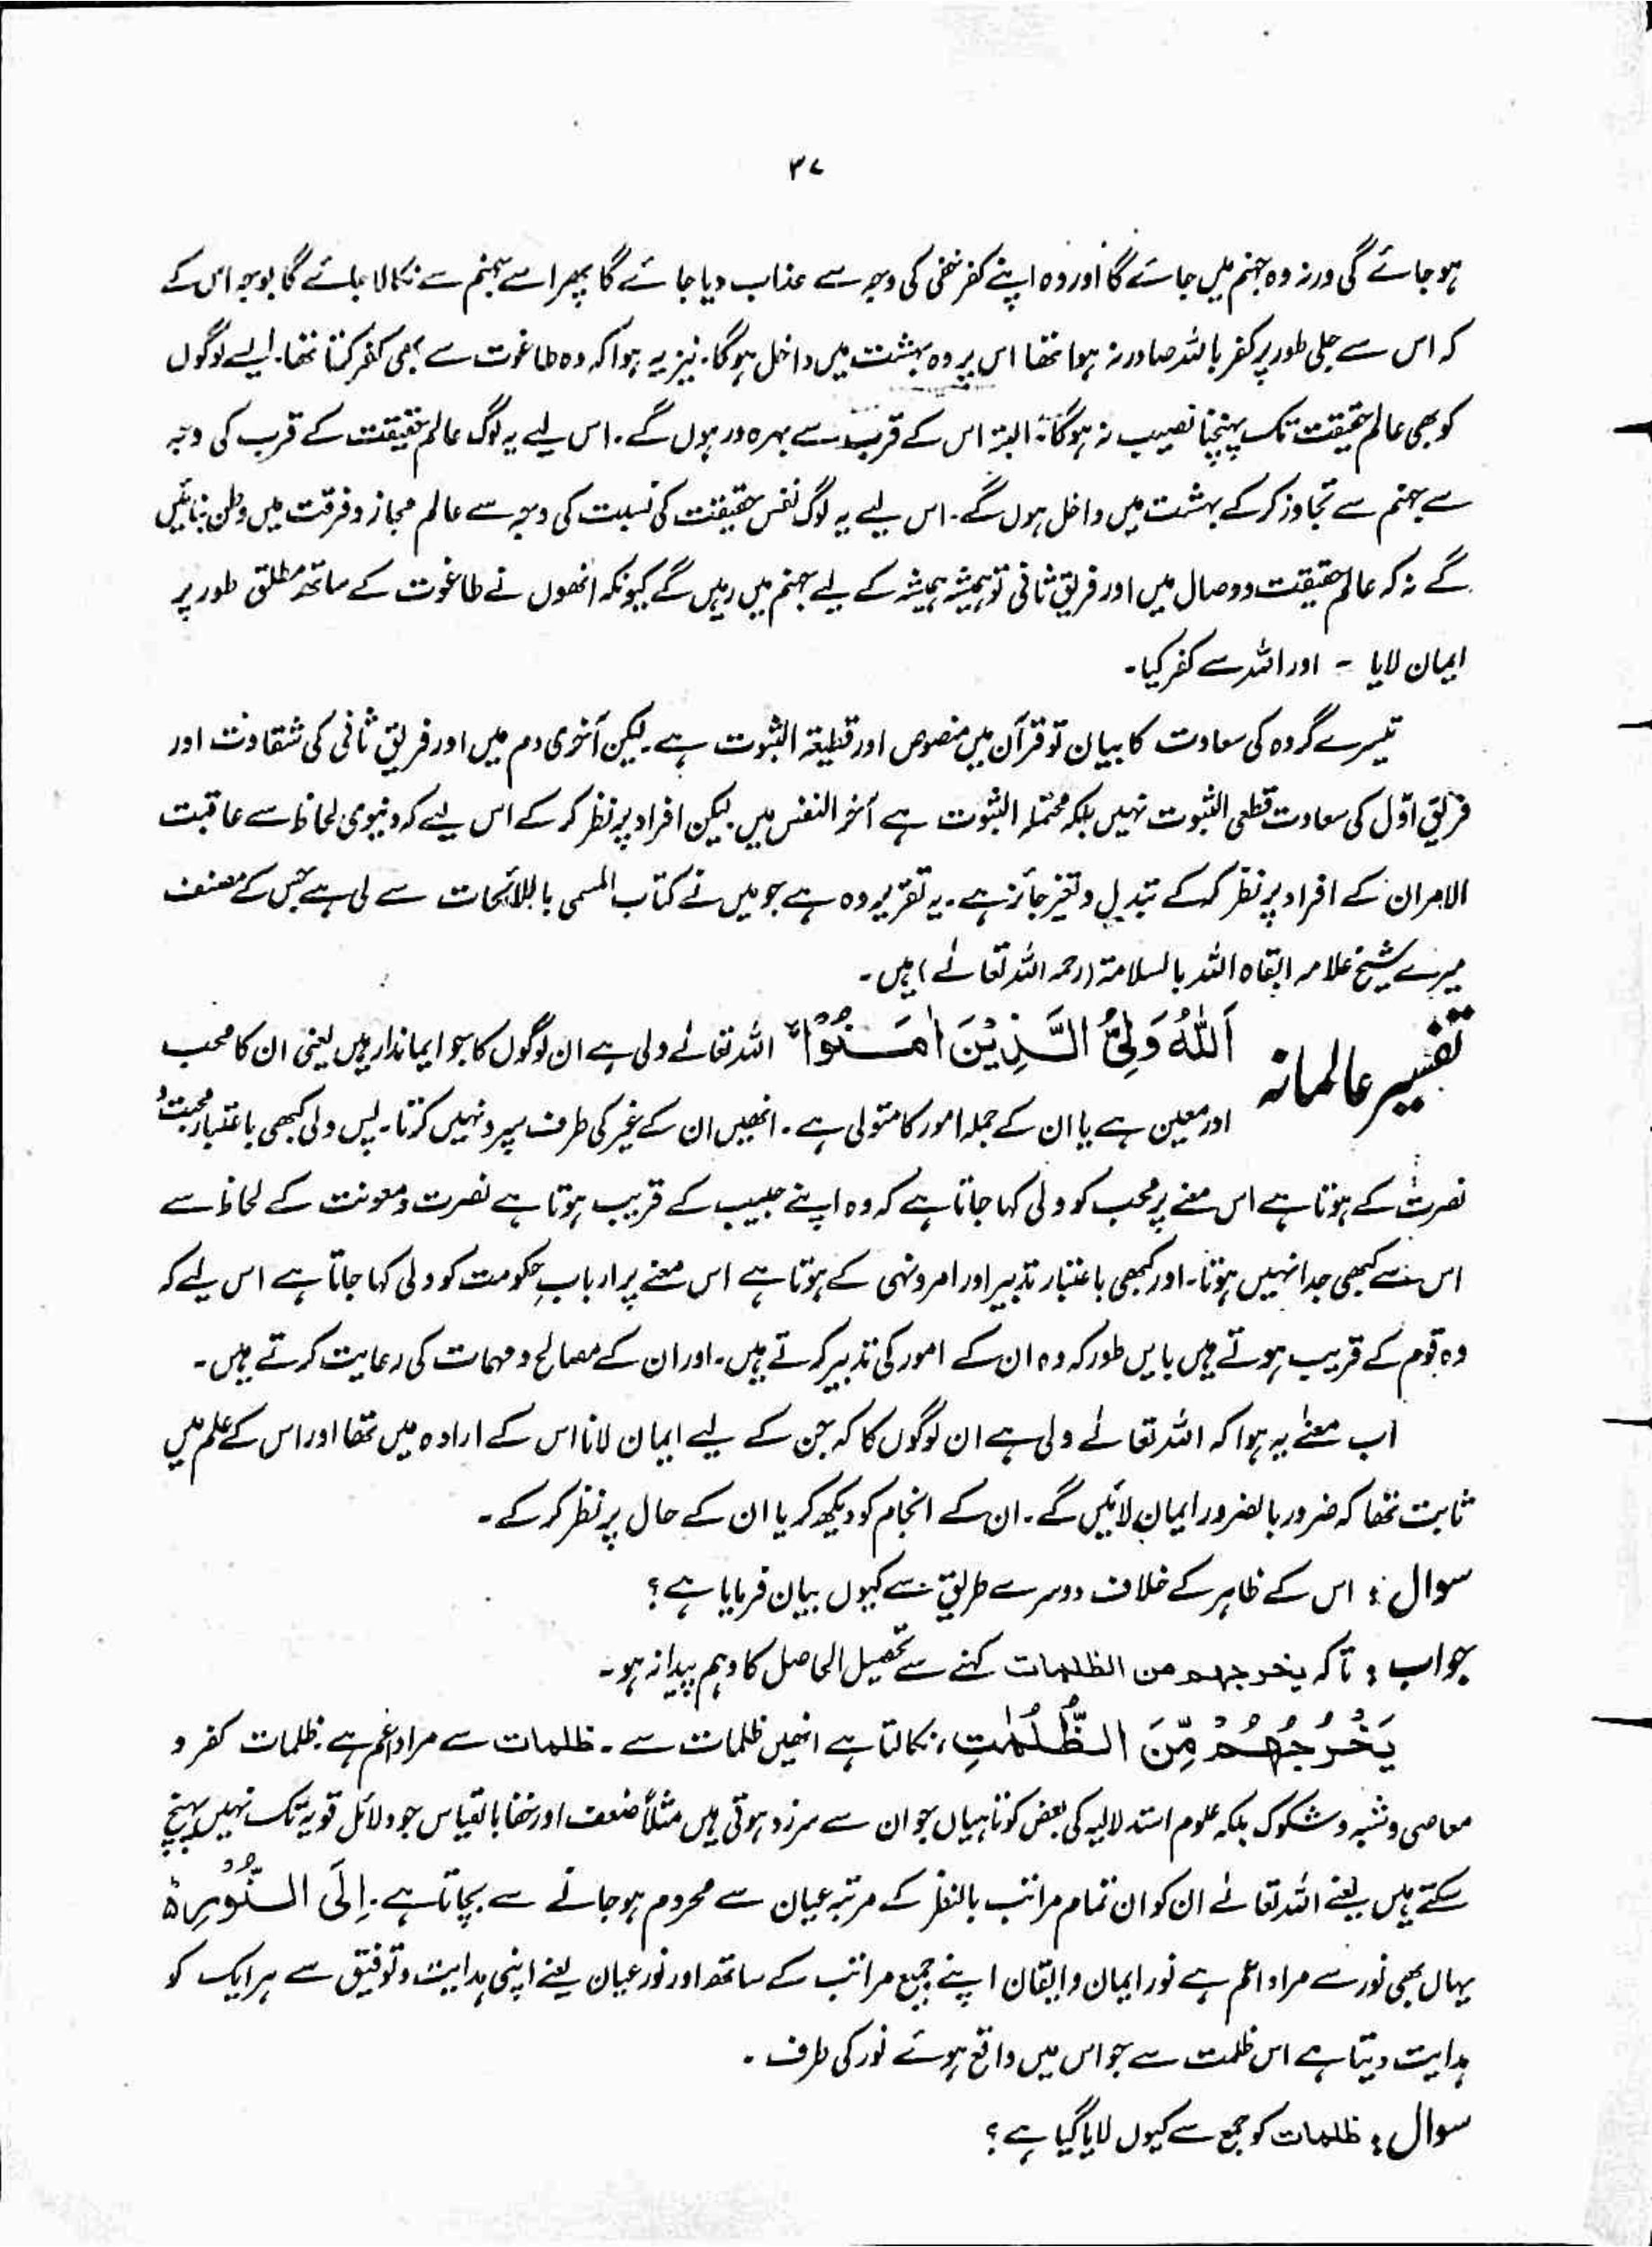 ۳۷
ہو جائے گی ورنہ وہ جہنم میں جائے گا اور وہ اپنے کفر خفی کی وجہ سے عذاب دیا جائے گا پھر اسے جہنم سے نکالا جائے گا بوجہ اس کے
کہ اس سے جلی طور پر کفر باللہ صادر نہ ہوا تھا اس پر وہ بہشت میں داخل ہوگا۔ نیز یہ ہوا کہ وہ طاغوت سے بھی کفر کرتا تھا۔ ایسے لوگوں
کو بھی عالم حقیقت تک پہنچنا نصیب نہ ہوگا، البتہ اس کے قرب سے بہرہ ور ہوں گے۔ اس لیے یہ لوگ عالم حقیقت کے قرب کی وجہ
سے جہنم سے تجاوز کر کے بہشت میں داخل ہوں گے۔ اس لیے یہ لوگ نفس حقیقت کی نسبت کی وجہ سے عالم مجاز و فرقت میں وطن بنائیں
گے نہ کہ عالم حقیقت و وصال میں اور فریق ثانی تو ہمیشہ ہمیشہ کے لیے جہنم میں رہیں گے کیونکہ انھوں نے طاغوت کے ساتھ مطلق طور پر
ایمان لایا - اور اللہ سے کفر کیا۔
تیسرے گروہ کی سعادت کا بیان تو قرآن میں منصوص اور قطعیۃ الثبوت ہے۔ لیکن آخری دم میں اور فریق ثانی کی شقاوت اور
فریق اوّل کی سعادت قطعی الثبوت نہیں بلکہ محتملہ الثبوت ہے آخر النفس میں لیکن افراد پر نظر کر کے اس لیے کہ دنیوی لحاظ سے عاقبت
الامر ان کے افراد پر نظر کر کے تبدیل و تغیر جائز ہے۔ یہ تقریر وہ ہے جو میں نے کتاب المسمی باللائحات سے لی ہے جس کے مصنف
میرے شیخ علامہ ابقاہ اللہ بالسلامۃ (رحمہ اللہ تعالےٰ) ہیں۔
تفسیر عالمانہ اَللّٰهُ وَلِیُّ الَّذِیْنَ اٰمَنُوْا اللہ تعالےٰ ولی ہے ان لوگوں کا جو ایماندار ہیں یعنی ان کا محب
اور معین ہے یا ان کے جملہ امور کا متولی ہے۔ انھیں ان کے غیر کی طرف سپرد نہیں کرتا۔ پس ولی کبھی باعتبار محبت و
نصرت کے ہوتا ہے اس معنے پر محب کو ولی کہا جاتا ہے کہ وہ اپنے حبیب کے قریب ہوتا ہے نصرت و معونت کے لحاظ سے
اس سے کبھی جدا نہیں ہوتا۔ اور کبھی باعتبار تدبیر اور امر و نہی کے ہوتا ہے اس معنے پر اربابِ حکومت کو ولی کہا جاتا ہے اس لیے کہ
وہ قوم کے قریب ہوتے ہیں بایں طور کہ وہ ان کے امور کی تدبیر کرتے ہیں۔ اور ان کے مصالح و مہمات کی رعایت کرتے ہیں۔
اب معنےٰ یہ ہوا کہ اللہ تعالےٰ ولی ہے ان لوگوں کا کہ جن کے لیے ایمان لانا اس کے ارادہ میں تھا اور اس کے علم میں
ثابت تھا کہ ضرور بالضرور ایمان لائیں گے۔ ان کے انجام کو دیکھ کر یا ان کے حال پر نظر کر کے۔
سوال : اس کے ظاہر کے خلاف دوسرے طریق سے کیوں بیان فرمایا ہے؟
جواب : تاکہ یخرجہم من الظلمات کہنے سے تحصیل الحاصل کا وہم پیدا نہ ہو۔
یُخْرِجُهُمْ مِّنَ الظُّلُمٰتِ، نکالتا ہے انھیں ظلمات سے۔ ظلمات سے مراد اعم ہے۔ ظلمات کفر و
معاصی و شبہ و شکوک بلکہ علوم استدلالیہ کی بعض کوتاہیاں جو ان سے سرزد ہوتی ہیں مثلاً ضعف اور خفا بالقیاس جو دلائل قویہ تک نہیں پہنچ
سکتے ہیں یعنے اللہ تعالےٰ ان کو ان تمام مراتب بالنظر کے مرتبہ عیان سے محروم ہو جانے سے بچاتا ہے۔ اِلَی النُّوْرِ ۃ
یہاں بھی نور سے مراد اعم ہے نور ایمان و ایقان اپنے جمیع مراتب کے ساتھ اور نور عیان یعنے اپنی ہدایت و توفیق سے ہر ایک کو
ہدایت دیتا ہے اس ظلمت سے جو اس میں واقع ہوئے نور کی طرف۔
سوال : ظلمات کو جمع سے کیوں لایا گیا ہے؟